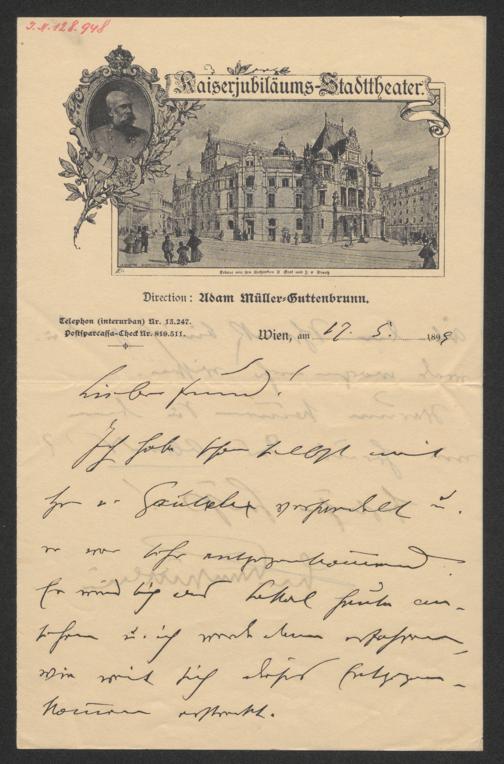 J.N. 128.948
Kaiserjubiläums-Stadttheater.
Erbaut von den Architekten
Direction: Adam Müller-Guttenbrunn.
Telephon (interurban) Nr. 15.247.
Postsparcassa-Check Nr. 819.511.
Wien, am 17. 5. 1899
Lieber Freund!
Ich habe schon selbst mit
verhandelt u.
er war sehr entgegenkommend.
Er wird sich das Lokal heute an-
sehen u. ich werde dann erfahren,
wie weit sich dieses Entgegen-
kommen erstreckt.